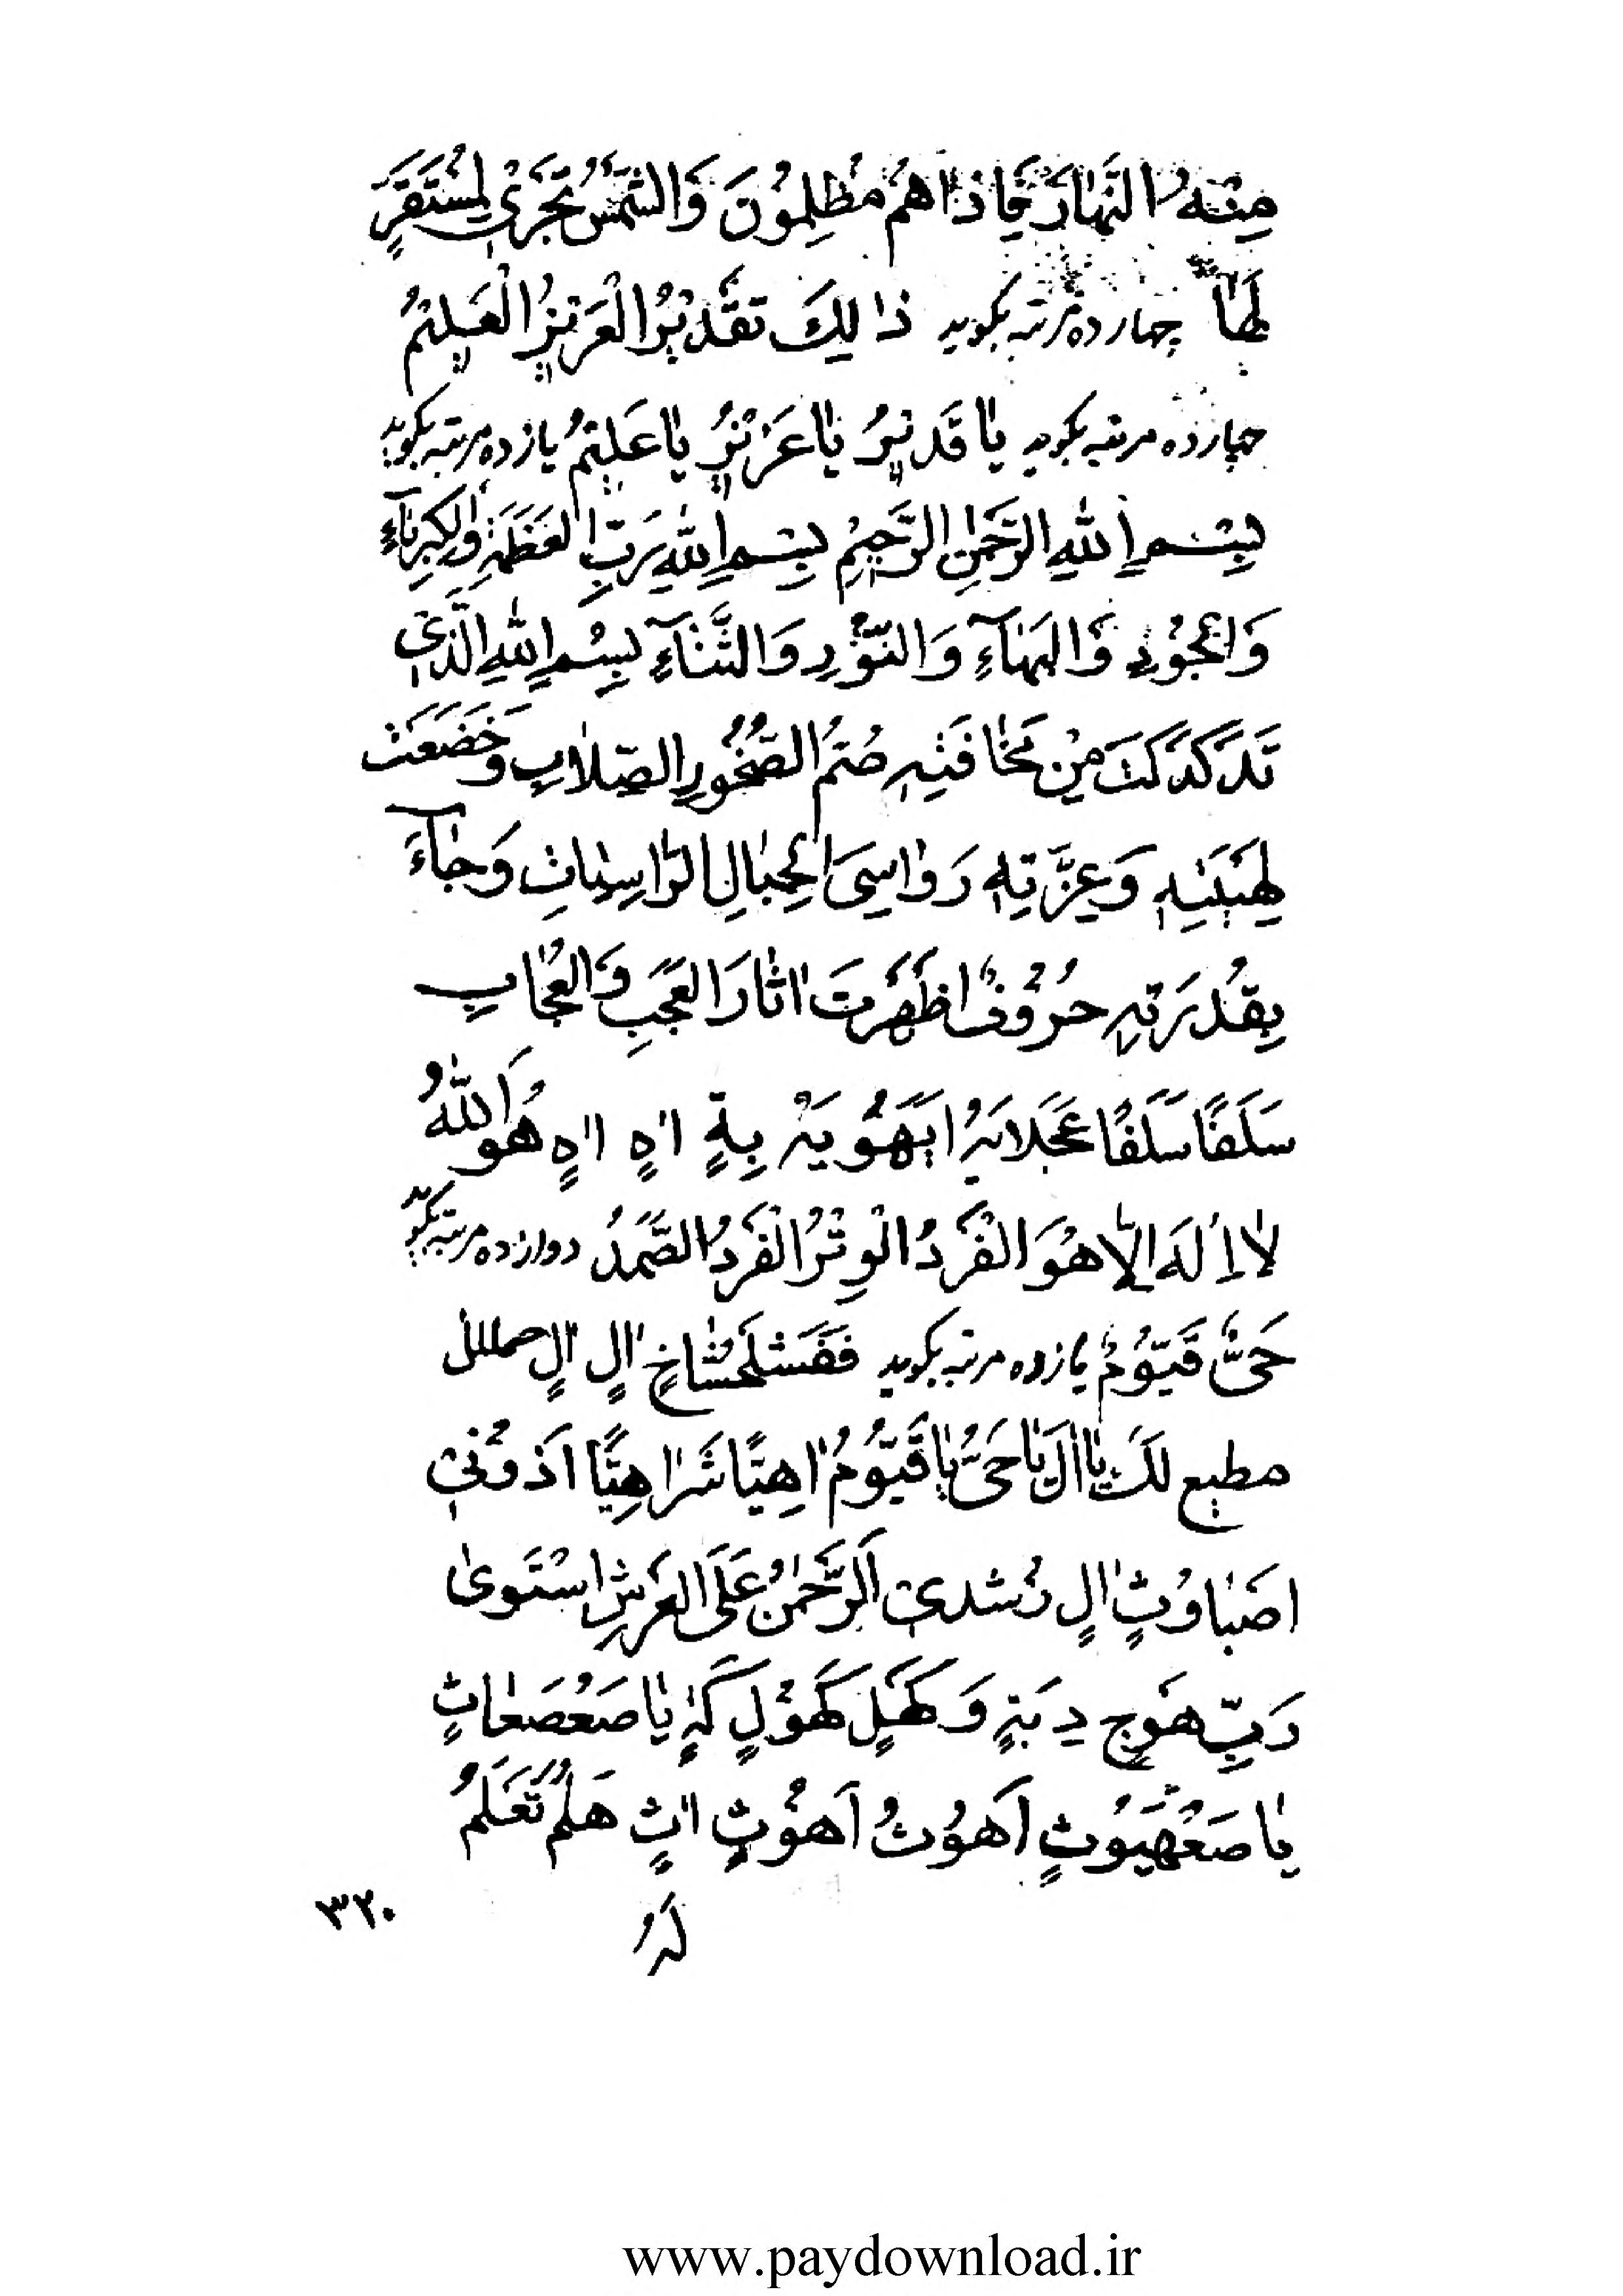 مِنْهُ النَّهَارَ فَاِذَا هُمْ مُظْلِمُوْنَ وَالشَّمْسُ تَجْرَیْ لِمُسْتَقَرٍّ
لَهَا چهارده مرتبه بگوید ذَالِكَ تَقْدٖيْرُ الْعَزٖيْزِ الْعَلٖيْمُ
چهارده مرتبه بگوید يَا قَدٖيْرُ يَا عَزٖيْزُ يَا عَلٖيْمُ یازده مرتبه بگوید
بِسْمِ اللّٰهِ الرَّحْمٰنِ الرَّحٖيْمِ بِسْمِ اللّٰهِ رَبِّ الْعَظَمَةِ وَالْكِبْرِيَآءِ
وَالْجُوْدِ وَالْبَهَآءِ وَالنُّوْرِ وَالثَّنَآءِ بِسْمِ اللّٰهِ الَّذٖی
تَدَكْدَكَتْ مِنْ مَخَافَتِهٖ صُمُّ الصُّخُوْرِ الصِّلَابِ وَخَضَعَتْ
لِهَيْبَتِهٖ وَعِزَّتِهٖ رَوَاسِیَ الْجِبَالِ الرَّاسِيَاتِ وَجَآءَ
بِقُدْرَتِهٖ حُرُوْفًا ظَهَرَتْ اٰثَارَ الْعَجَبِ وَالْعُجَابِ
سَلَفًا سَلَفًا اٰهٍ اٰهٍ هُوَ اللّٰهُ
لَا اِلٰهَ اِلَّا هُوَ الْفَرْدُ الْوِتْرُ الْفَرْدُ الصَّمَدُ دوازده مرتبه بگوید
حَیٌّ قَيُّوْمٌ یازده مرتبه بگوید اٰلٍ اٰلٍ
لَكَ يَا اٰلَ يَا حَیُّ يَا قَيُّوْمُ اٰهِيًّا شَرَاهِيًّا اَذُوْنٖی
اَصَبَاوُثٍ اٰلٍ اَلرَّحْمٰنُ عَلَی الْعَرْشِ اسْتَوٰی
رَبِّ هَوَجٍ وَكَهَلٍ كَهَوْلٍ يَا صَعْصَعَاثٍ
يَا اَهَوُثٌ اَهَوُثٍ اٰثٍ هَلُمَّ تَعْلَمُ
لَهُ
۳۲۰
www.paydownload.ir